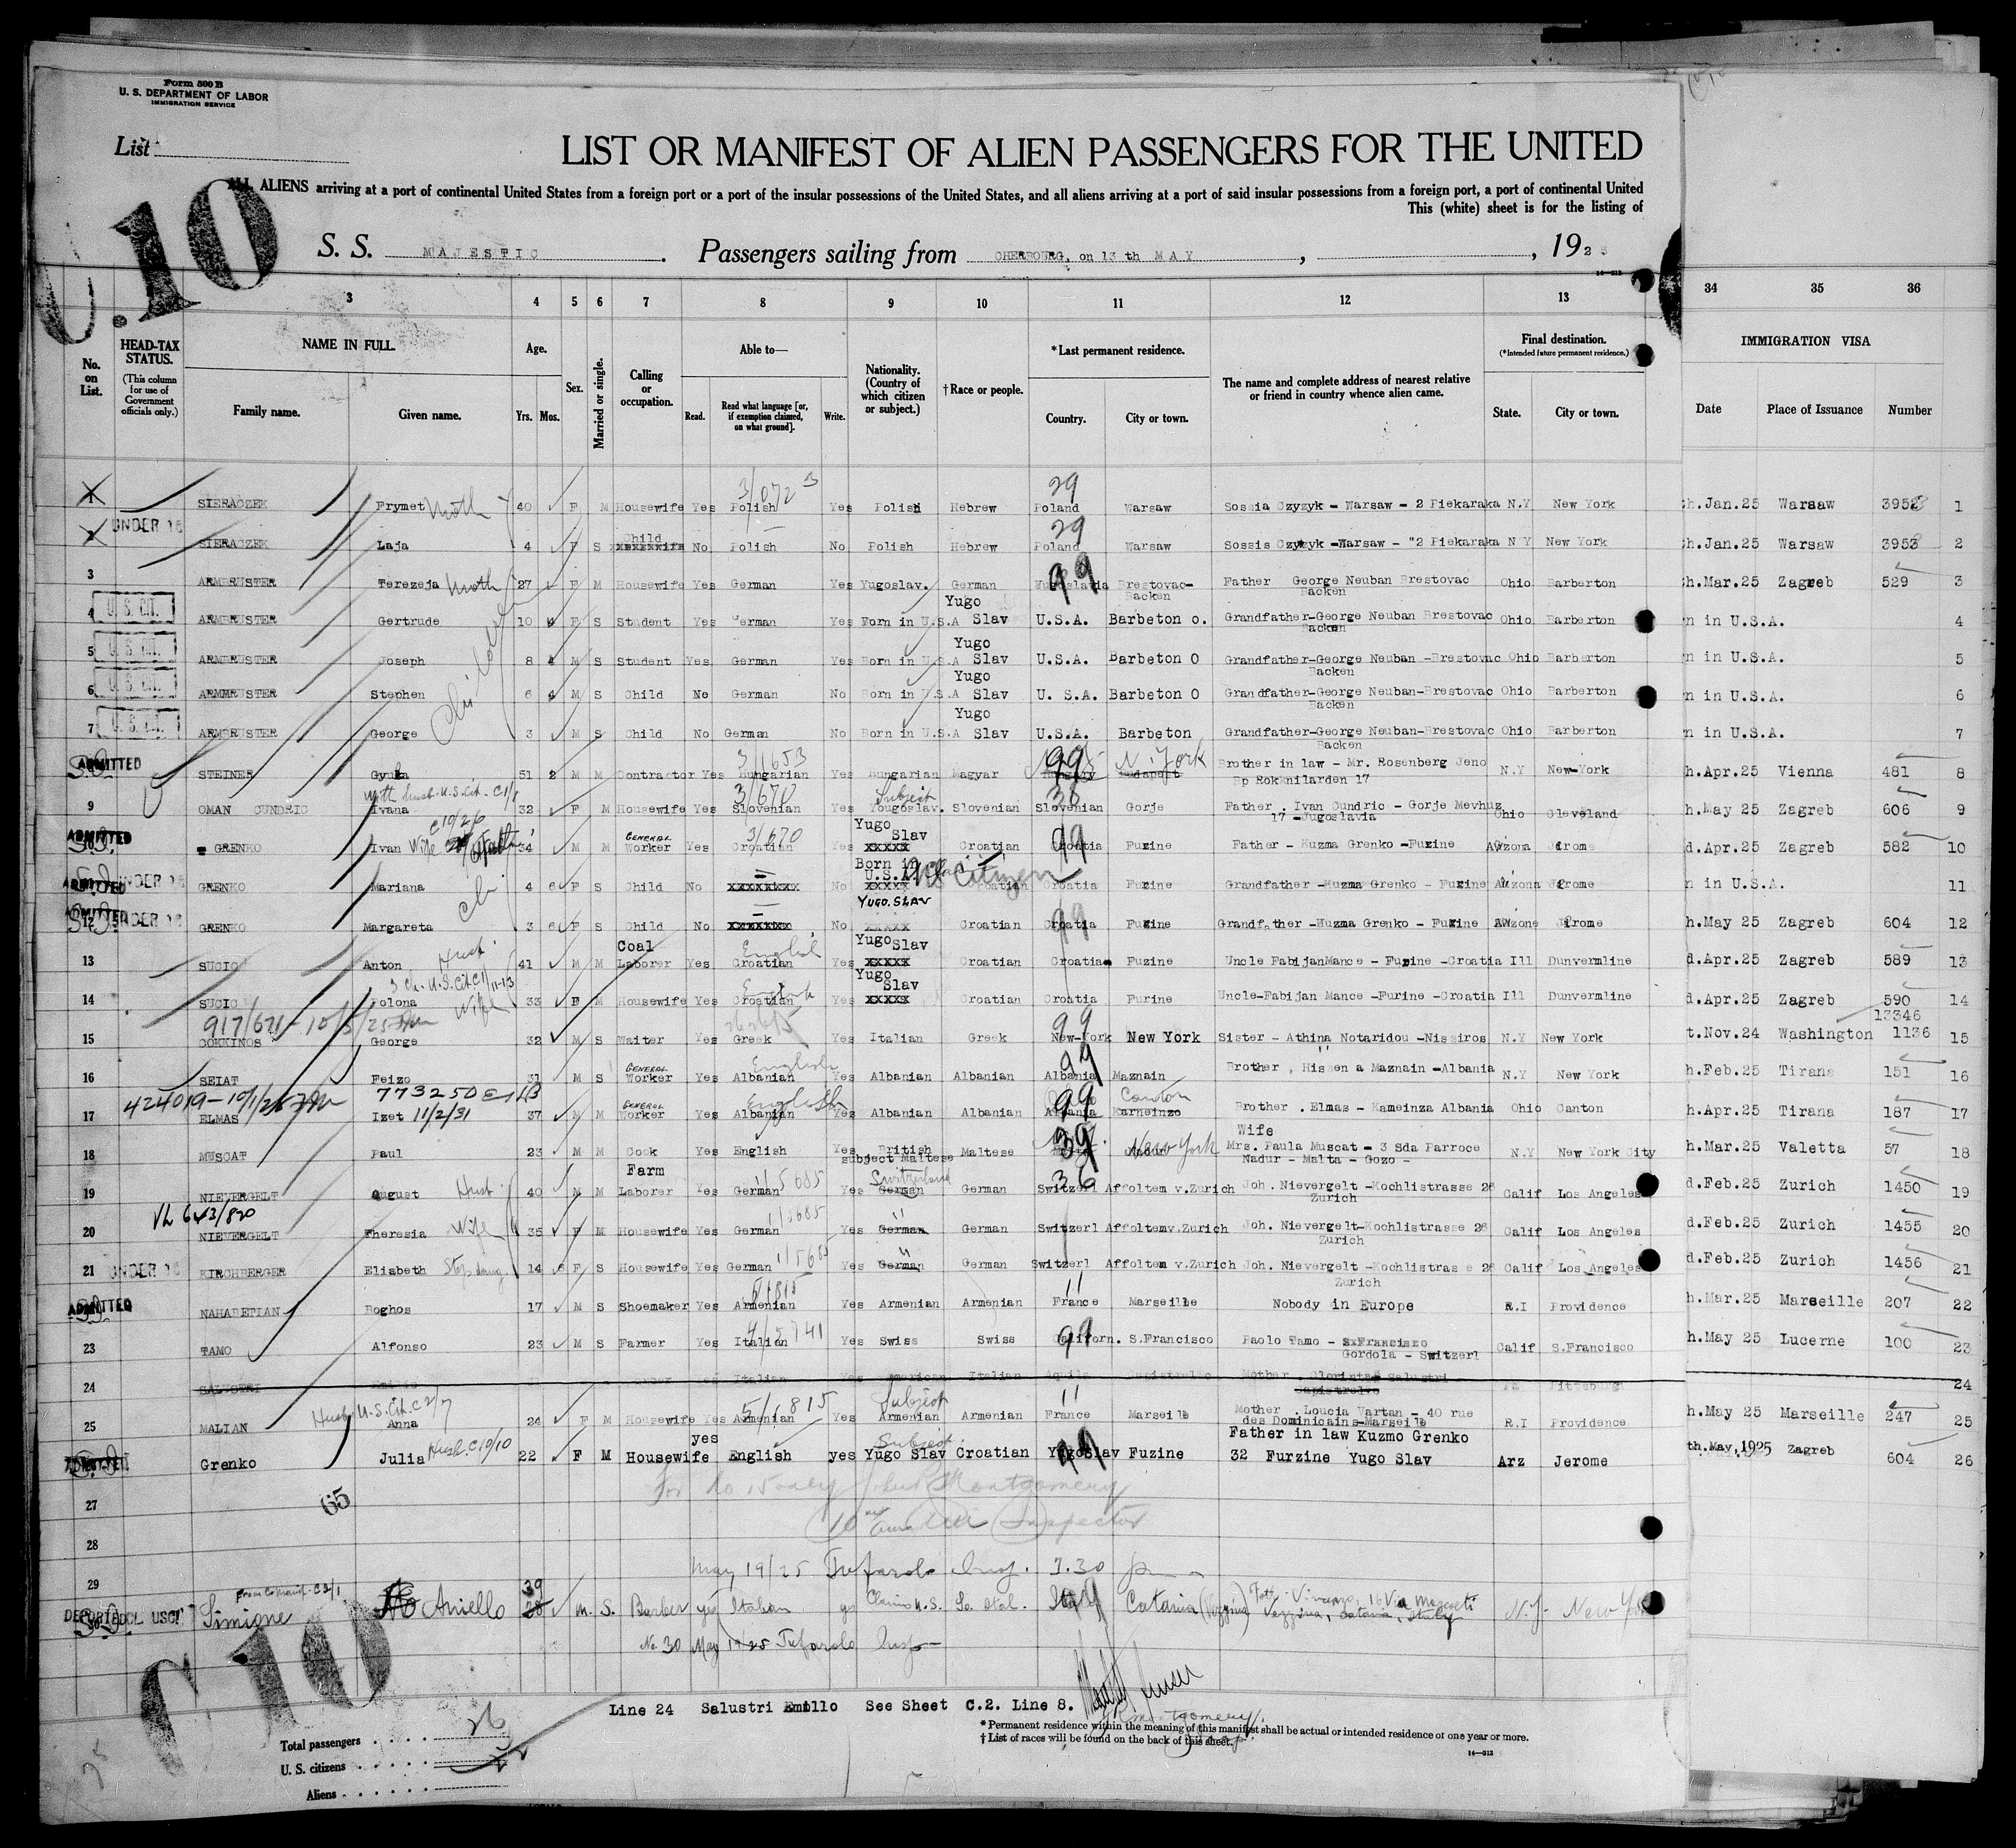 Form 500 B
U. S. DEPARTMENT OF LABOR
IMMIGRATION SERVICE
List
LIST OR MANIFEST OF ALIEN PASSENGERS FOR THE UNITED
ALL ALIENS arriving at a port of continental United States from a foreign port or a port of the insular possessions of the United States, and all aliens arriving at a port of said insular possessions from a foreign port, a port of continental United
This (white) sheet is for the listing of
C.10
S. S. MAJESTIC. Passengers sailing from CHERBOURG, on 13 th MAY, , 1925
1 3 4 5 6 7 8 9 10 11 12 13 34 35 36
No. on List.
HEAD-TAX STATUS.
(This column for use of Government officials only.)
NAME IN FULL.
Family name. Given name.
Age.
Yrs. Mos.
Sex.
Married or single.
Calling or occupation.
Able to—
Read. Read what language [or, if exemption claimed, on what ground]. Write.
Nationality. (Country of which citizen or subject.)
†Race or people.
*Last permanent residence.
Country. City or town.
The name and complete address of nearest relative or friend in country whence alien came.
Final destination.
(*Intended future permanent residence.)
State. City or town.
IMMIGRATION VISA
Date Place of Issuance Number
3/072 29
1 SIERACZEK Frymet Moth 40 F M Housewife Yes Polish Yes Polish Hebrew Poland Warsaw Sossia Czyzyk - Warsaw - 2 Piekaraka N.Y New York h.Jan.25 Warsaw 3952 1
UNDER 16 Child 29
2 SIERACZEK Laja 4 F S No Polish No Polish Hebrew Poland Warsaw Sossis Czyzyk -Warsaw - "2 Piekaraka N Y New York h.Jan.25 Warsaw 3953 2
3 ARMBRUSTER Terezeja Moth 27 F M Housewife Yes German Yes Yugoslav. German Yugoslavia 99 Brestovac- Backen Father George Neuban Brestovac Backen Ohio Barberton h.Mar.25 Zagreb 529 3
U. S. Cit. Yugo
4 ARMBRUSTER Gertrude 10 F S Student Yes German Yes Born in U.S.A Slav U.S.A. Barbeton o. Grandfather-George Neuban Brestovac Backen Ohio Barberton n in U.S.A. 4
U. S. Cit. Yugo
5 ARMBRUSTER Joseph 8 4 M S Student Yes German Yes Born in U.S.A Slav U.S.A. Barbeton O Grandfather-George Neuban -Brestovac Backen Ohio Barberton n in U.S.A. 5
U. S. Cit. Yugo
6 ARMBRUSTER Stephen 6 4 M S Child No German No Born in U.S.A Slav U. S.A. Barbeton O Grandfather-George Neuban-Brestovac Backen Ohio Barberton n in U.S.A. 6
U. S. Cit. Yugo
7 ARMBRUSTER George 3 M S Child No German No Born in U.S.A Slav U.S.A. Barbeton Grandfather-George Neuban-Brestovac Backen Ohio Barberton n in U.S.A. 7
ADMITTED 3/1653 99 N. York
STEINER Gyula 51 2 M M Contractor Yes Hungarian Yes Hungarian Magyar Hungary Budapest Brother in law - Mr. Rosenberg Jeno Bp Rokknilarden 17 N.Y New-York h.Apr.25 Vienna 481 8
With husb. U.S. Cit. C1/8 3/670 Subject 38
9 OMAN CUNDRIC Ivana 32 F M Housewife Yes Slovenian Yes Yougoslav. Slovenian Slovenian Gorje Father . Ivan Cundric - Gorje Mevhuz 17 -Jugoslavia Ohio Cleveland h.May 25 Zagreb 606 9
ADMITTED C10/26 GENERAL 3/670 Yugo Slav
GRENKO Ivan Wife 34 M M Worker Yes Croatian Yes XXXXX Croatian Croatia 99 Fuzine Father - Kuzma Grenko -Fuzine Arizona Jerome d.Apr.25 Zagreb 582 10
ADMITTED UNDER 16 Born in U.S.A. US Citizen
GRENKO Mariana 4 6 F S Child No XXXXXXXX No XXXXX Croatian Croatia Fuzine Grandfather -Kuzma Grenko - Fuzine Arizona Jerome n in U.S.A. 11
ADMITTED UNDER 16 YUGO.SLAV
12 GRENKO Margareta 3 6 F S Child No XXXXXXXX No XXXXX Croatian Croatia 99 Fuzine Grandfather -Kuzma Grenko - Fuzine Jerome h.May 25 Zagreb 604 12
Coal English Yugo Slav
13 SUCIC Anton Husb. 41 M M Laborer Yes Croatian Yes XXXXX Croatian Croatia Fuzine Uncle FabijanMance - Fuzine -Croatia Ill Dunvermline d.Apr.25 Zagreb 589 13
3 Ch. U.S. Cit. C1/11-13 Yugo Slav
14 SUCIC Polona Wife 33 F M Housewife Yes Croatian Yes XXXXX Croatian Croatia Furine Uncle-Fabijan Mance -Furine -Croatia Ill Dunvermline d.Apr.25 Zagreb 590 14
917/671 - 10/5/25 99 13346
15 COKKINOS George 32 M S Waiter Yes Greek Yes Italian Greek New-York New York Sister - Athina Notaridou -Nissiros N.Y New York t.Nov.24 Washington 1136 15
GENERAL English 99
16 SEIAT Feizo 31 M S Worker Yes Albanian Yes Albanian Albanian Albania Maznain Brother , Hissen a Maznain -Albania N.Y. New York h.Feb.25 Tirana 151 16
424019 - 10/1/25 773250 GENERAL English 99 Canton
17 ELMAS Izet 11/2/31 37 M M Worker Yes Albanian Yes Albanian Albanian Albania Karneinzo Brother . Elmas - Kameinza Albania Ohio Canton h.Apr.25 Tirana 187 17
Wife
18 MUSCAT Paul 23 M M Cook Yes English Yes British subject Maltese Maltese 39 New York Mrs. Paula Muscat - 3 Sda Parroce Nadur - Malta - Gozo - N.Y New York City h.Mar.25 Valetta 57 18
Farm 1/5685 Switzerland 36
19 NIEVERGELT August Husb 40 M M Laborer Yes German Yes German German Switzerl Affoltem v.Zurich Joh. Nievergelt -Kochlistrasse 26 Zurich Calif Los Angeles d.Feb.25 Zurich 1450 19
1/5685 "
20 NIEVERGELT Theresia Wife 35 F M Housewife Yes German Yes German German Switzerl Affoltemv.Zurich Joh. Nievergelt-Kochlistrasse 26 Zurich Calif Los Angeles d.Feb.25 Zurich 1455 20
1/5685 "
21 UNDER 16 KIRCHBERGER Elisabeth Step daug 14 F S Housewife Yes German Yes German German Switzerl Affoltem v.Zurich Joh. Nievergelt -Kochlistrasse 26 Zurich Calif Los Angeles d.Feb.25 Zurich 1456 21
ADMITTED 11
NAHABETIAN Boghos 17 M S Shoemaker Yes Armenian Yes Armenian Armenian France Marseille Nobody in Europe R.I Providence h.Mar.25 Marseille 207 22
4/5741
23 TAMO Alfonso 23 M S Farmer Yes Italian Yes Swiss Swiss Californ. 99 S.Francisco Paolo Tamo - S.Francisco Gordola - Switzerl Calif S.Francisco h.May 25 Lucerne 100 23
24 SALUSTRI Italian Italian Aquila Mother Salustri Pittsburg 24
Husb U.S. Cit. C2/7 5/1815 Subject 11
25 MALIAN Anna 24 F M Housewife Yes Armenian Yes Armenian Armenian France Marseilb Mother . Loucia Vartan - 40 rue des Dominicains-Marseilb R.I Providence h.May 25 Marseille 247 25
ADMITTED yes Subject. Father in law Kuzmo Grenko
Grenko Julia Husb. C10/10 22 F M Housewife English yes Yugo Slav Croatian Yugoslav 99 Fuzine 32 Furzine Yugo Slav Arz Jerome th.May,1925 Zagreb 604 26
65
27
John Montgomery
Inspector
28
May 19/25 Tufarolo Insp. 7.30
29
39
DEPORTED CL. USC! Simione Aniello 28 M. S. Barber yes Italian yes Claims U.S. So. Ital. Italy 99 Catania (Vizzini) Fath. Vincenzo, 16 Via Catania, Italy N.Y. New York
No 30 May 19/25 Tufarolo Insp
C 10
Line 24 Salustri Emilio See Sheet C.2. Line 8.
Total passengers 26
U. S. citizens
Aliens
* Permanent residence within the meaning of this manifest shall be actual or intended residence of one year or more.
† List of races will be found on the back of this sheet.
14—913